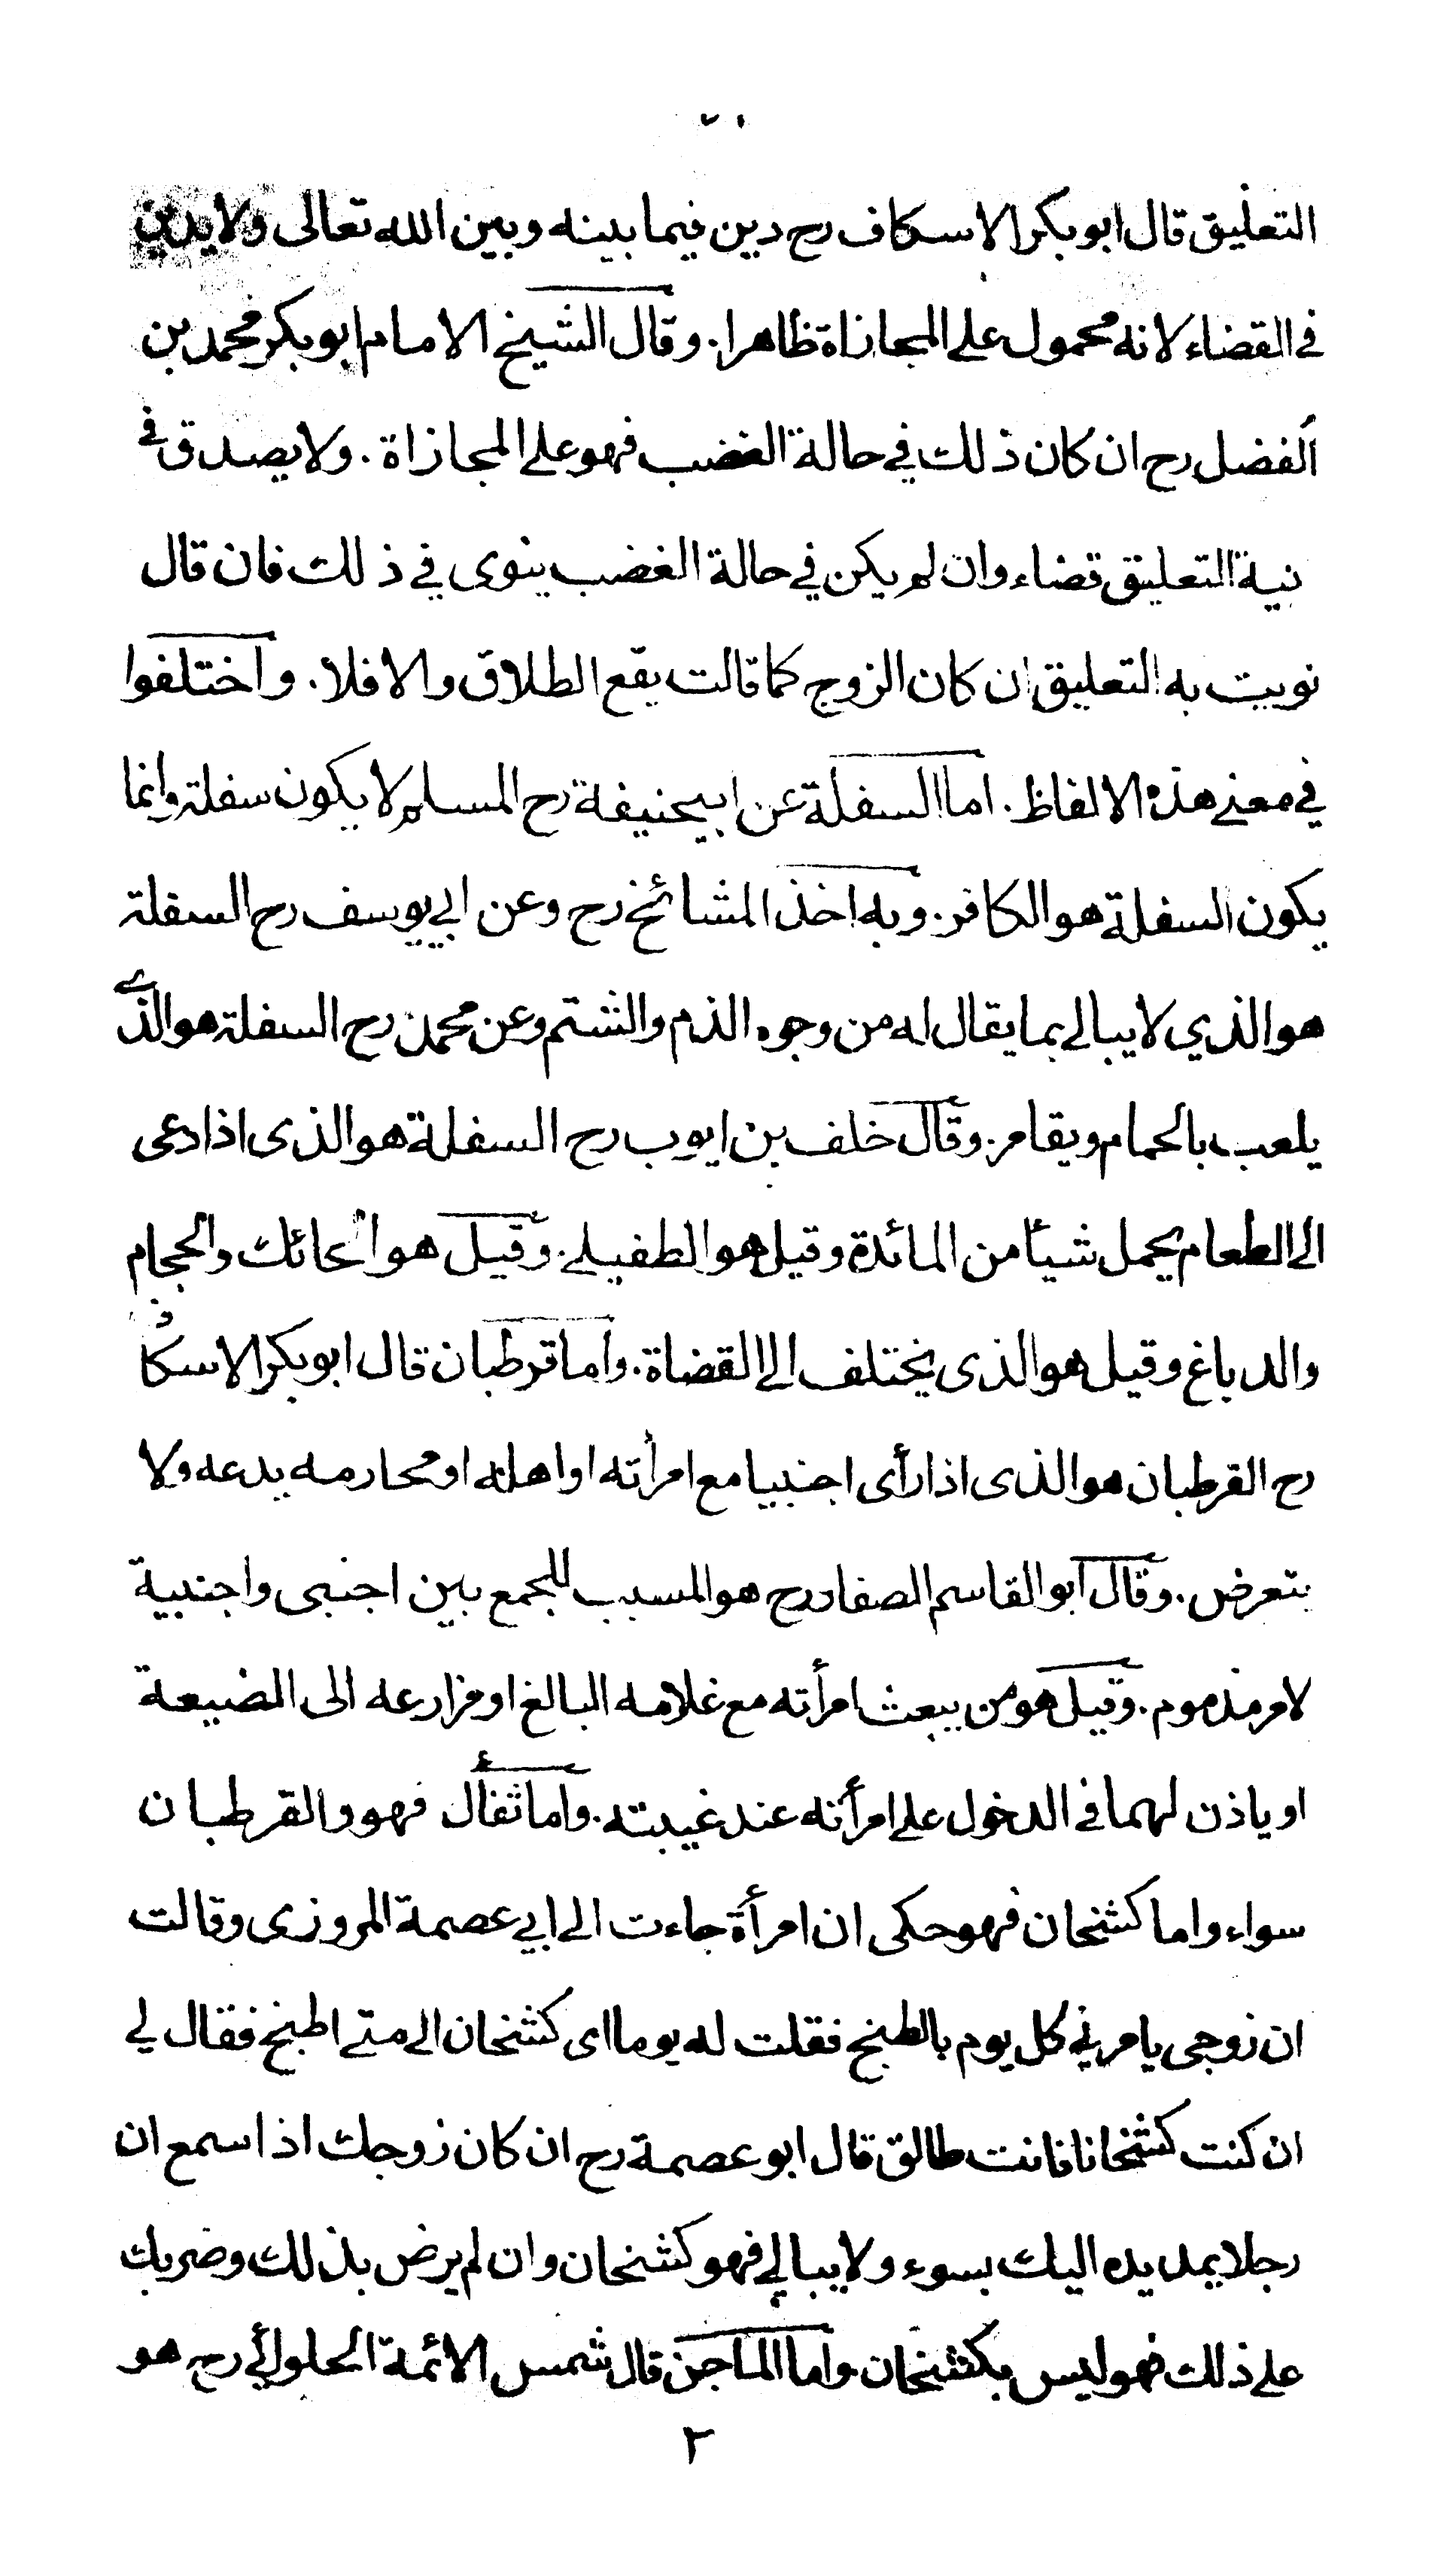 التعليق قال ابو بكر الاسكاف رح دين فيما بينه وبين الله تعالى ولا يدين
في القضاء لانه محمول على المجازاة ظاهرا. وقال الشيخ الامام ابو بكر محمد بن
الفضل رح ان كان ذلك في حالة الغضب فهو على المجازاة. ولا يصدق في
نية التعليق قضاء وان لم يكن في حالة الغضب ينوى في ذلك فان قال
نويت به التعليق ان كان الزوج كما قالت يقع الطلاق والا فلا. واختلفوا
في معنى هذه الالفاظ. اما السفلة عن ابيحنيفة رح المسلم لا يكون سفلة وانما
يكون السفلة هو الكافر. وبه اخذ المشائخ رح وعن ابي يوسف رح السفلة
هو الذي لا يبالي بما يقال له من وجوه الذم والشتم وعن محمد رح السفلة هو الذي
يلعب بالحمام ويقامر. وقال خلف بن ايوب رح السفلة هو الذى اذا دعى
الى الطعام يحمل شيئا من المائدة وقيل هو الطفيلي. وقيل هو الحائك والحجام
والدباغ وقيل هو الذى يختلف الى القضاة. واما قرطبان قال ابو بكر الاسكاف
رح القرطبان هو الذى اذا رأى اجنبيا مع امرأته او اهله او محارمه يدعه ولا
يتعرض. وقال ابو القاسم الصفار رح هو المسبب للجمع بين اجنبى واجنبية
لامر مذموم. وقيل هو من يبعث امرأته مع غلامه البالغ او مزارعه الى الضيعة
او ياذن لهما في الدخول على امرأته عند غيبته. واما ثفال فهو والقرطبان
سواء واما كشخان فهو حكى ان امرأة جاءت الى ابي عصمة المروزى وقالت
ان زوجى يامرني كل يوم بالطبخ فقلت له يوما اى كشخان الى متى اطبخ فقال لي
ان كنت كشخانا فانت طالق قال ابو عصمة رح ان كان زوجك اذا سمع ان
رجلا يمد يده اليك بسوء ولا يبالي فهو كشخان وان لم يرض بذلك وضربك
على ذلك فهو ليس بكشخان. واما الماجن قال شمس الائمة الحلوائي رح هو
٢